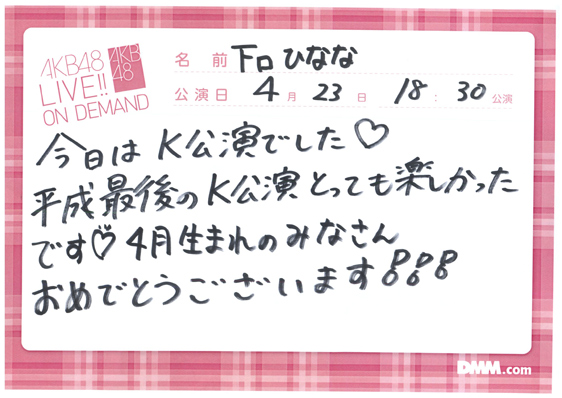 AKB48
LIVE!!
ON DEMAND
AKB
48
名前 下口ひなな
公演日 4月23日 18:30公演
今日はK公演でした♡
平成最後のK公演とっても楽しかった
です♡4月生まれのみなさん
おめでとうございます!!!
DMM.com